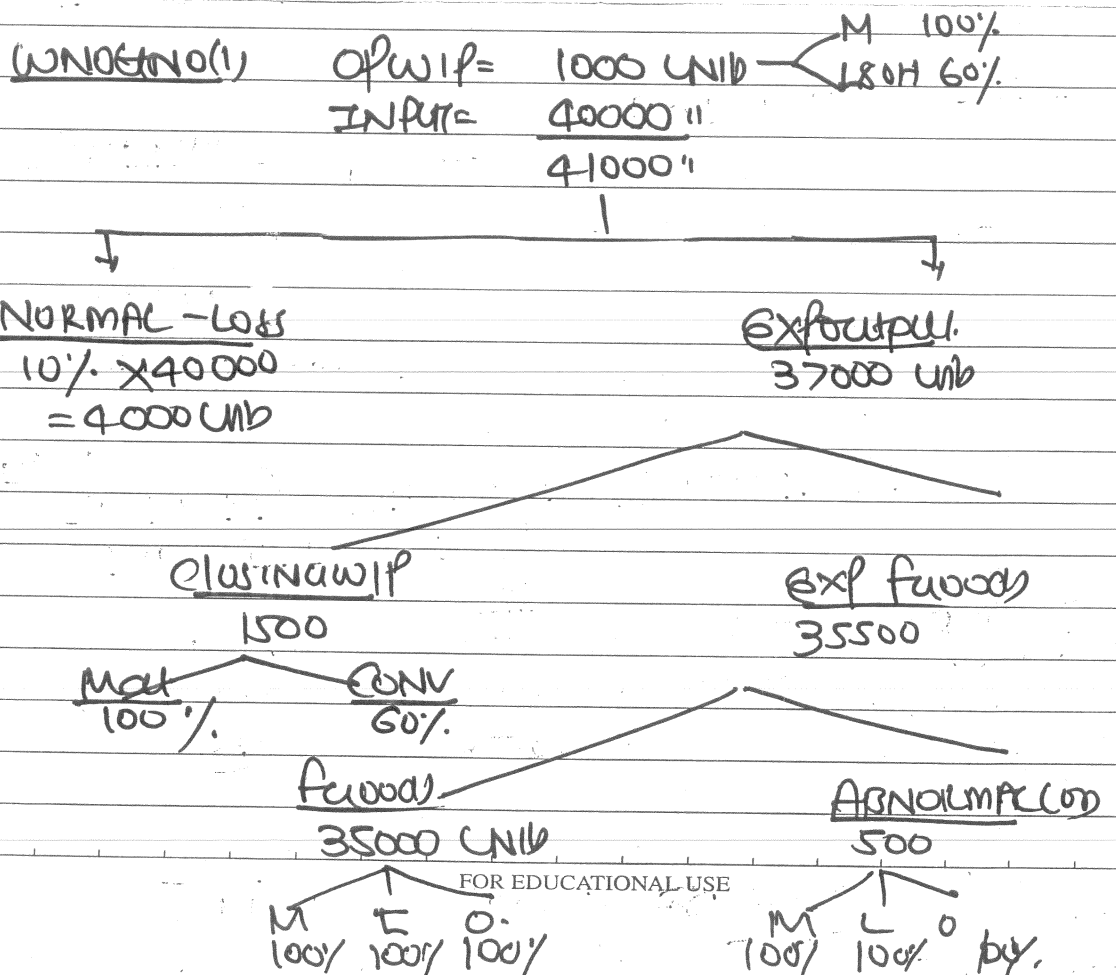 WNOTNO(1) OPWIP= 1000 UNITS M 100%
L&OH 60%
INPUT= 40000 "
41000 "
NORMAL-LOSS
10% X40000
= 4000 Units
Expoutput.
37000 Units
CLOSINGWIP
1500
Mat
100%
CONV
60%
Exp fgoods
35500
fgoods
35000 UNITS
ABNORMAL LOSS
500
FOR EDUCATIONAL USE
M L O.
100% 100% 100%
M L O
100% 100%